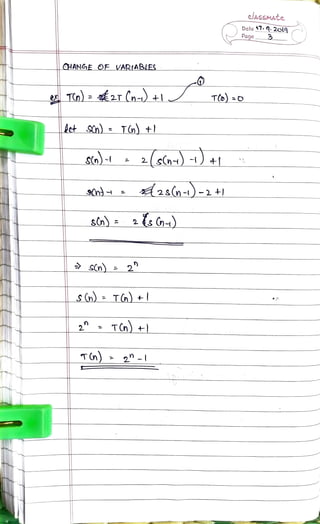 classmate
Date 17.9.2019
Page 3
CHANGE OF VARIABLES
①
ex T(n) = 2T (n-1) +1 T(0) = 0
Let s(n) = T(n) +1
s(n) -1 = 2(s(n-1) -1) +1
s(n) -1 = 2s(n-1) -2 +1
s(n) = 2 s(n-1)
⇒ s(n) = 2ⁿ
s(n) = T(n) +1
2ⁿ = T(n) +1
T(n) = 2ⁿ -1